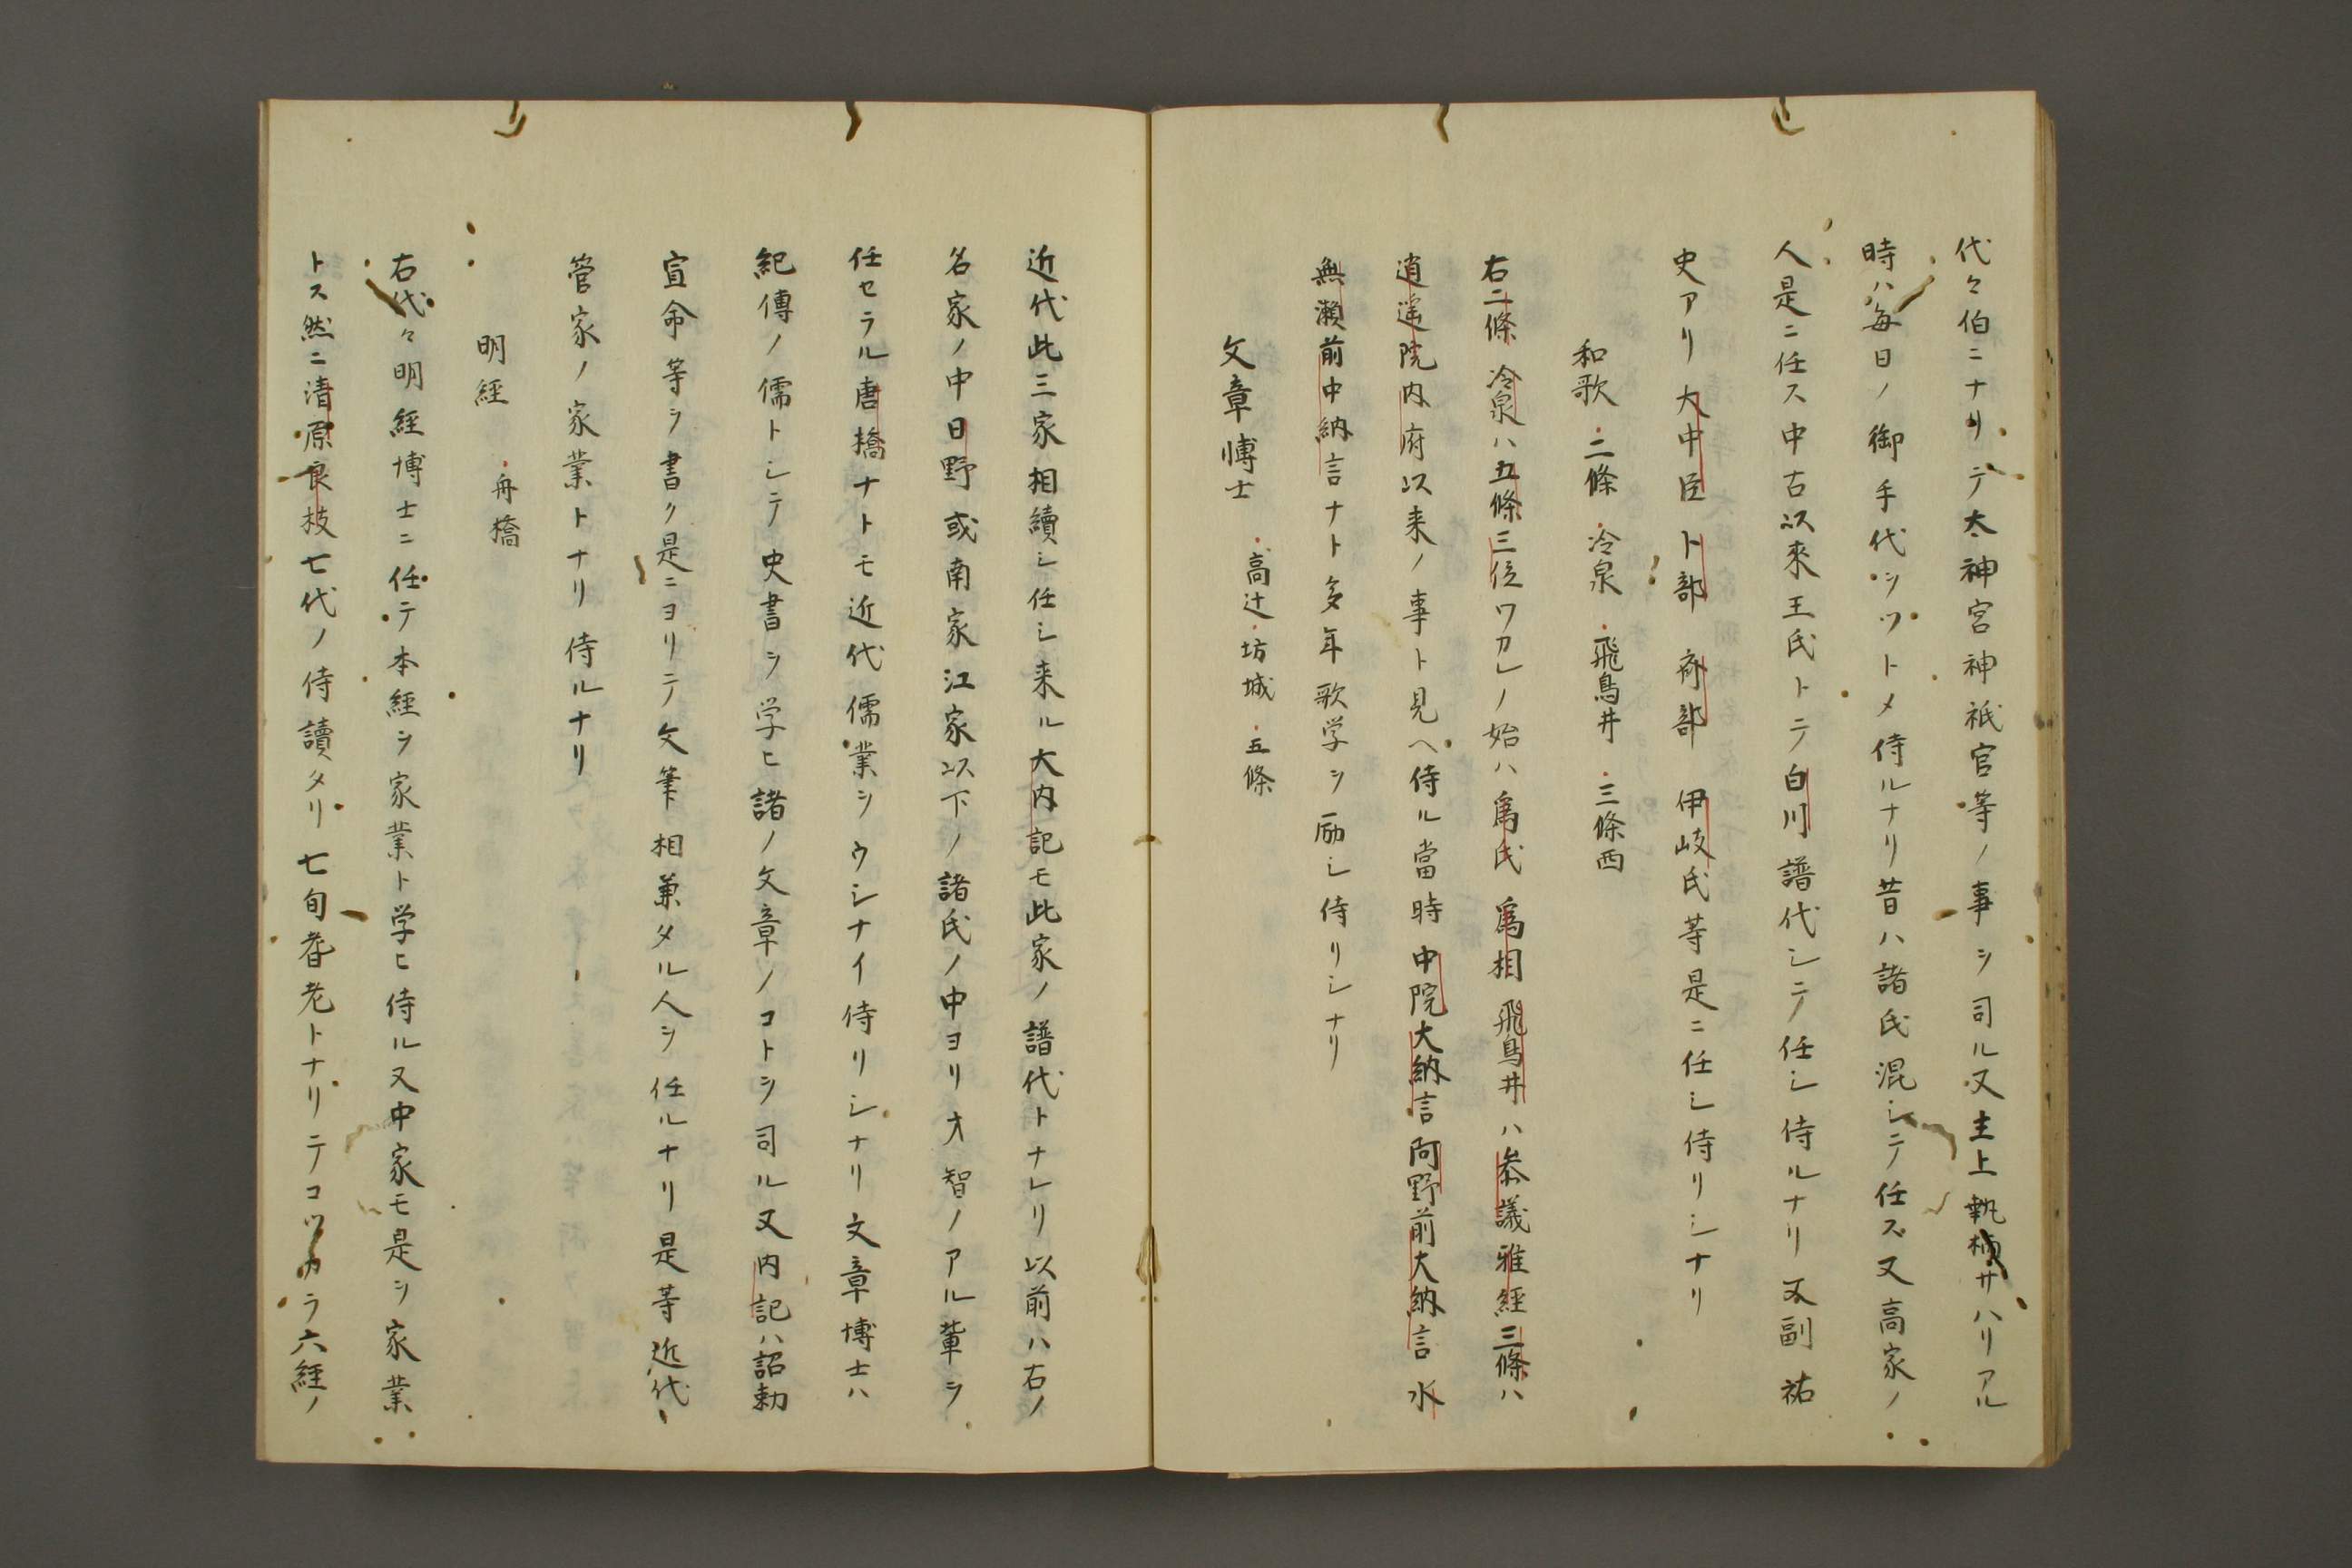 代々伯ニナリテ太神宮神祇官等ノ事ヲ司ル又主上執柄サハリアル
時ハ毎日ノ御手代ヲツトメ侍ルナリ昔ハ諸氏混シテ任ズ又高家ノ
人是ニ任ス中古以來王氏トテ白川譜代シテ任シ侍ルナリ又副祐
史アリ大中臣卜部斎部伊岐氏等是ニ任シ侍リシナリ
和歌 二條 冷泉 飛鳥井 三條西
右二條冷泉ハ五條三位ワカレノ始ハ爲氏爲相飛鳥井ハ参議雅経三條ハ
逍遥院内府以来ノ事ト見ヘ侍ル當時中院大納言阿野前大納言水
無瀬前中納言ナト多年歌学ヲ励シ侍リシナリ
文章博士 高辻 坊城 五條
近代此三家相續シ任シ来ル大内記モ此家ノ譜代トナレリ以前ハ右ノ
名家ノ中日野或南家江家以下ノ諸氏ノ中ヨリ才智ノアル輩ヲ
任セラル唐橋ナトモ近代儒業ヲウシナイ侍リシナリ文章博士ハ
紀傳ノ儒トシテ史書ヲ学ヒ諸ノ文章ノコトヲ司ル又内記ハ詔勅
宣命等ヲ書ク是ニヨリテ文筆相兼タル人ヲ任ルナリ是等近代
管家ノ家業トナリ侍ルナリ
明経 舟橋
右代々明経博士ニ任テ本経ヲ家業ト学ヒ侍ル又中家モ是ヲ家業
トス然ニ清原良枝七代ノ侍讀タリ七旬耆老トナリテコツカラ六経ノ